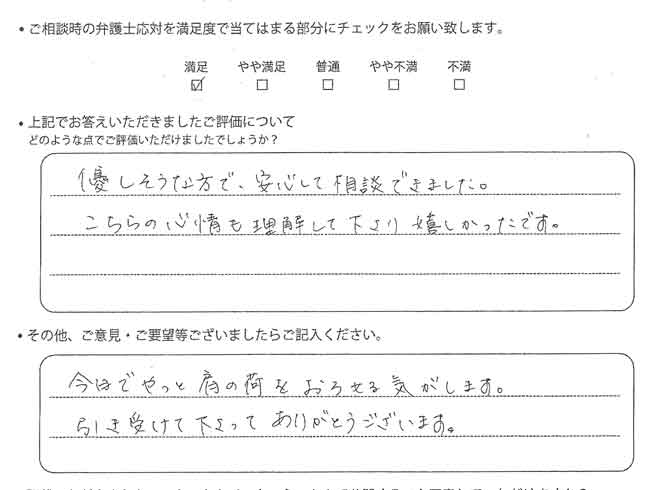 ・ご相談時の弁護士応対を満足度で当てはまる部分にチェックをお願い致します。
満足 やや満足 普通 やや不満 不満
☑ □ □ □ □
・上記でお答えいただきましたご評価について
どのような点でご評価いただけましたでしょうか？
優しそうな方で、安心して相談できました。
こちらの心情も理解して下さり嬉しかったです。
・その他、ご意見・ご要望等ございましたらご記入ください。
今日でやっと肩の荷をおろせる気がします。
引き受けて下さってありがとうございます。